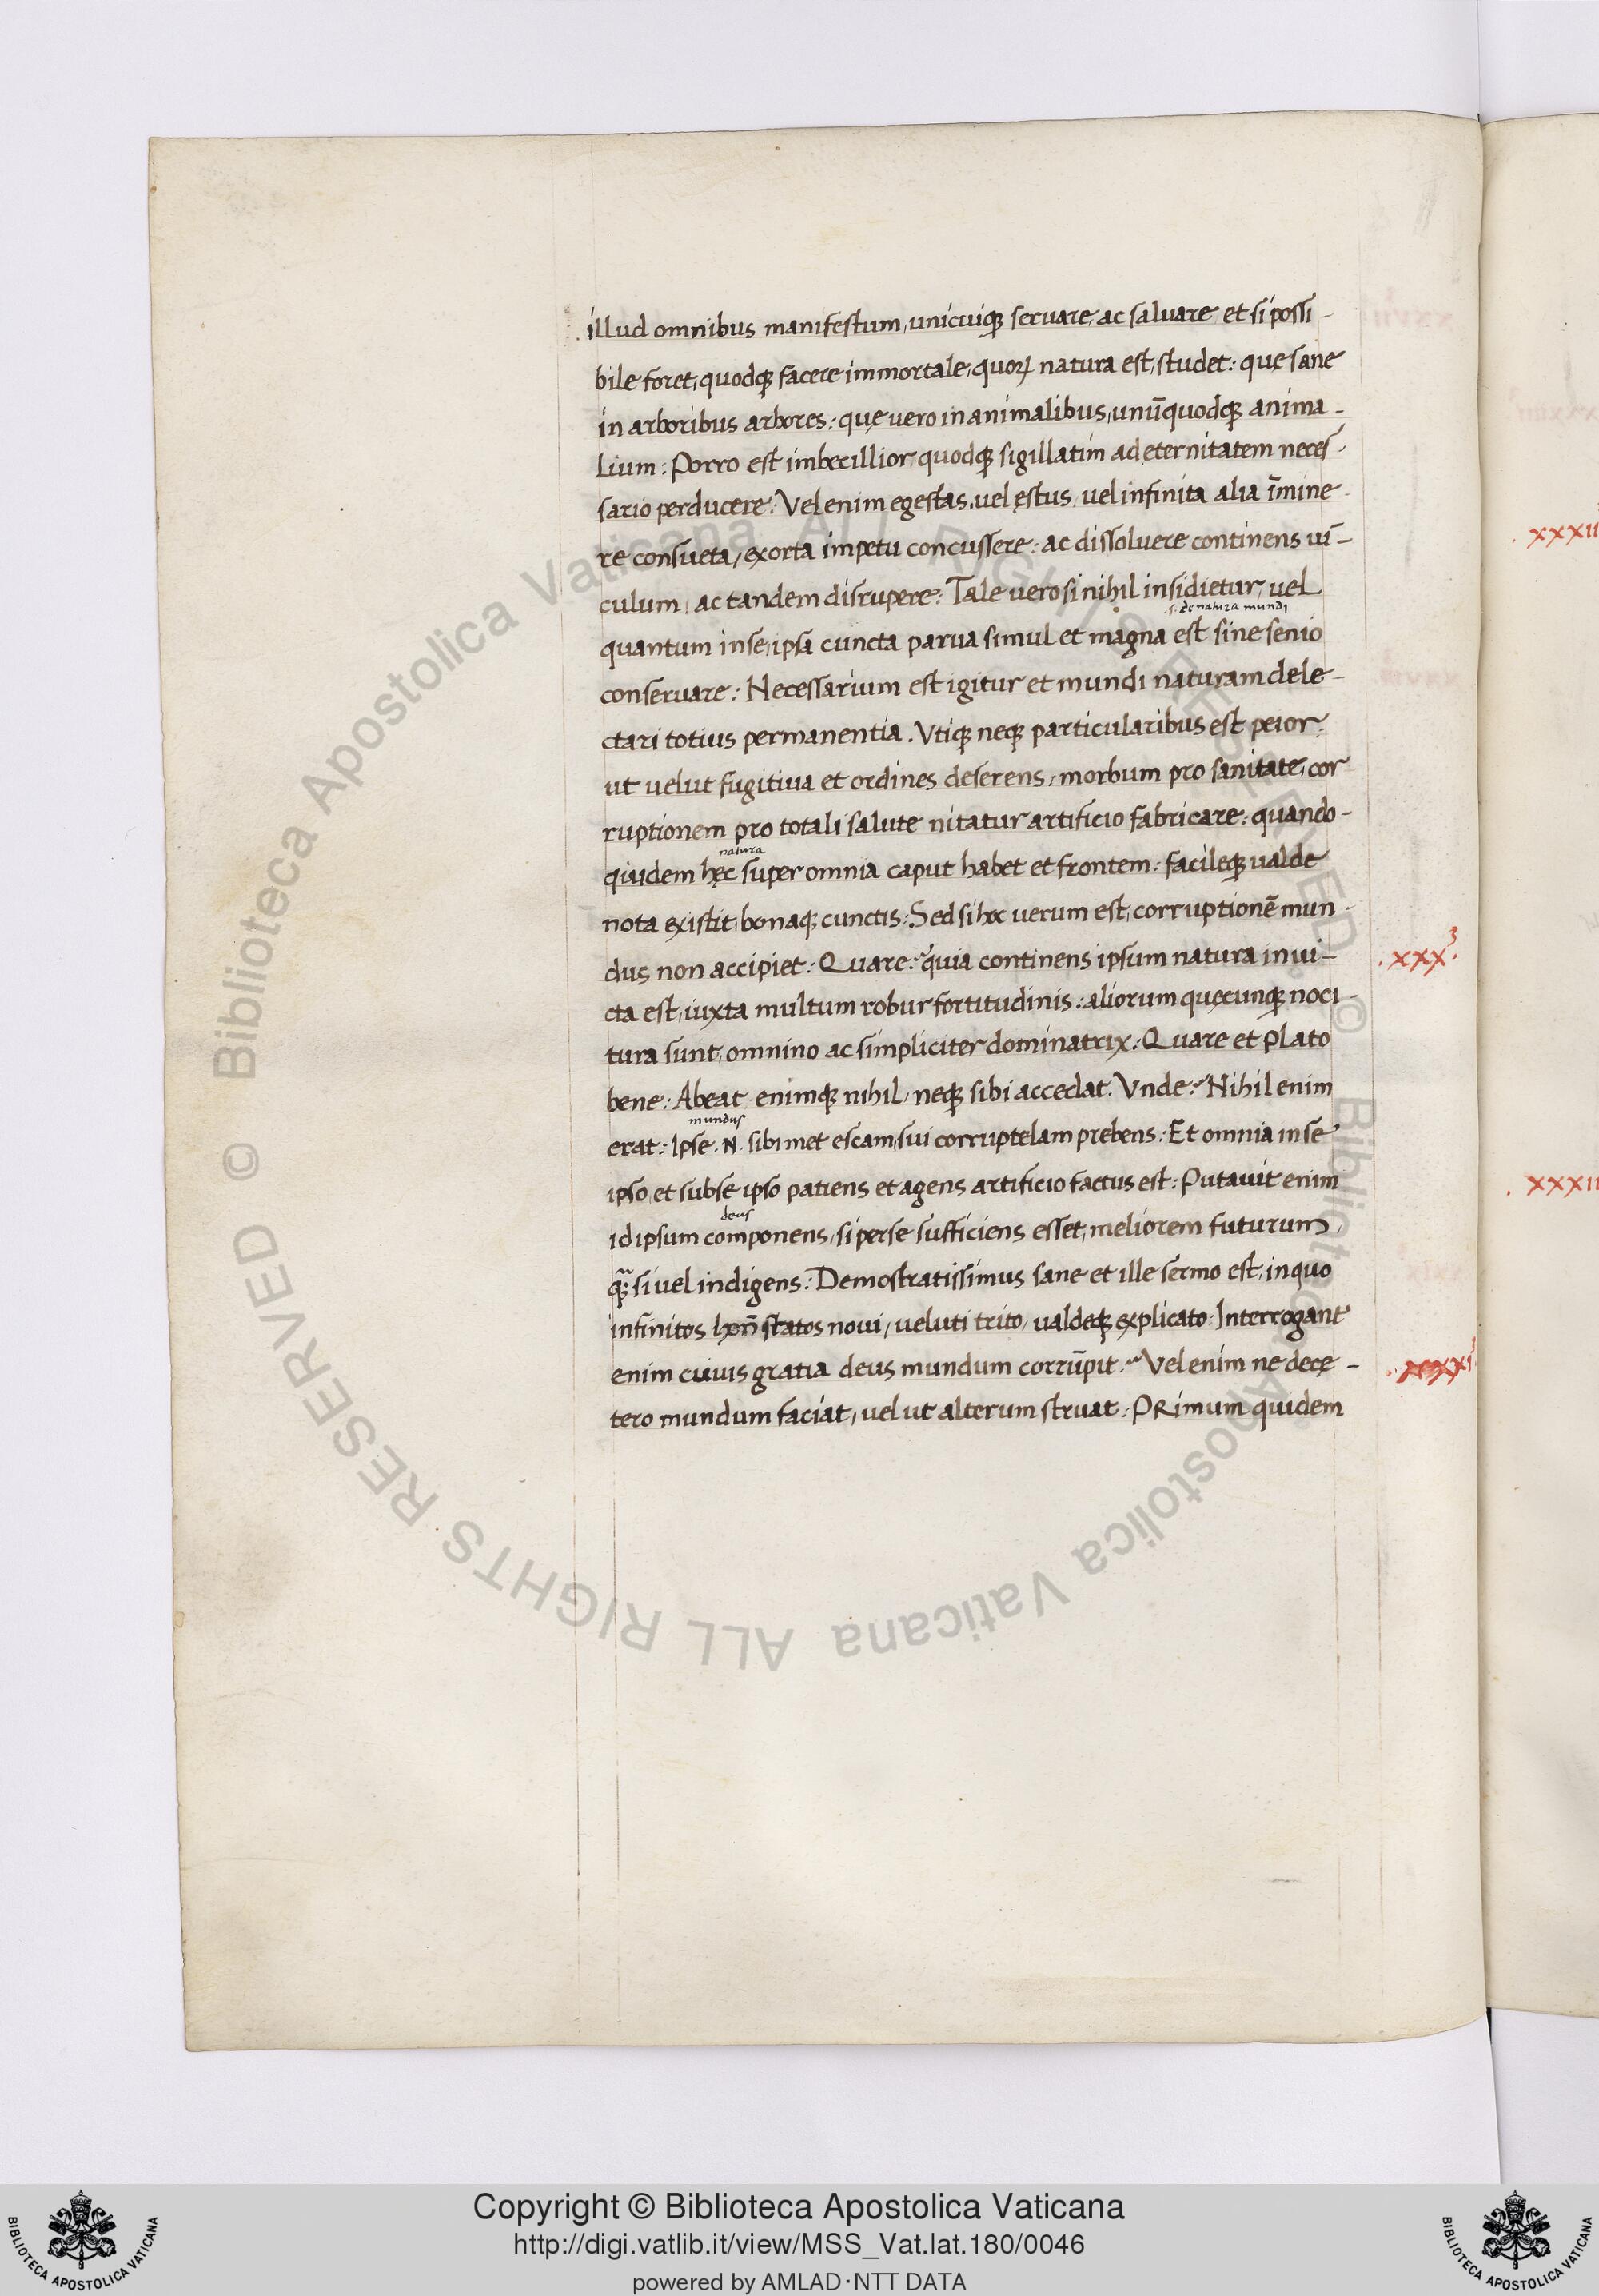 illud omnibus manifestum, unicuiqꝫ seruare, ac saluare et si possi-
bile foret, quodqꝫ facere immortale, quoꝝ natura est, studet: quę sane
in arboribus arbores: quę uero in animalibus, unūquodqꝫ anima-
lium: Porro est imbecillior, quodqꝫ sigillatim ad eternitatem neces-
sario perducere: Vel enim egestas, uel ęstus, uel infinita alia īmine-
re consueta, exorta impetu concussere: ac dissoluere continens uī-
culum, ac tandem disrupere: Tale uero si nihil insidietur, uel
s. de natura mundi
quantum in se, ipsa cuncta parua simul et magna est sine senio
conseruare: Necessarium est igitur et mundi naturam dele-
ctari totius permanentia. Vtiqꝫ neqꝫ particularibus est peior:
ut uelut fugitiua et ordines deserens, morbum pro sanitate, cor
ruptionem pro totali salute nitatur artificio fabricare: quando-
natura
quidem hęc super omnia caput habet et frontem: facileqꝫ ualde
nota existit, bonaqꝫ cunctis: Sed si hoc uerum est, corruptionē mun-
dus non accipiet: Quare? quia continens ipsum natura inui-
.xxx.
3
cta est, iuxta multum robur fortitudinis: aliorum quęcunqꝫ noci-
tura sunt, omnino ac simpliciter dominatrix: Quare et Plato
bene: Abeat enimqꝫ nihil, neqꝫ sibi accedat. Vnde? Nihil enim
mundus
erat: Ipse .N. sibimet escam, sui corruptelam prebens: Et omnia in se
ipso, et sub se ipso patiens et agens artificio factus est: Putauit enim
deus
id ipsum componens, si per se sufficiens esset, meliorem futurum,
qꝫ̃ si uel indigens: Demostratissimus sane et ille sermo est, in quo
infinitos statos noui, ueluti trito, ualdeqꝫ explicato: Interrogant
enim cuius gratia deus mundum corrūpit? Vel enim ne decę-
tero mundum faciat, uel ut alterum struat: PRimum quidem
xxxii
xxxii
Copyright © Biblioteca Apostolica Vaticana
http://digi.vatlib.it/view/MSS_Vat.lat.180/0046
powered by AMLAD·NTT DATA
BIBLIOTECA APOSTOLICA VATICANA
BIBLIOTECA APOSTOLICA VATICANA
© Biblioteca Apostolica Vaticana ALL RIGHTS RESERVED © Biblioteca Apostolica Vaticana ALL RIGHTS RESERVED